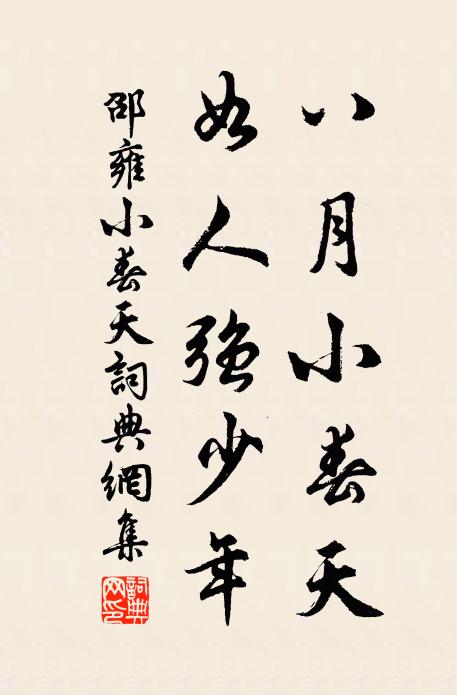 八月小春天
如人強少年
邵雍小春天詞典網集
詞典网印